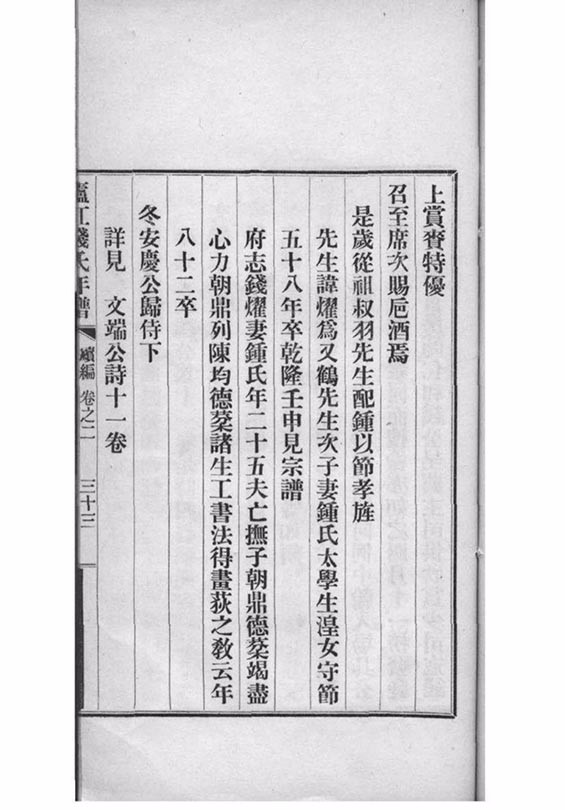 上賞賚特優
召至席次賜巵酒焉
是歲從祖叔羽先生配鍾以節孝旌
先生諱燿爲又鶴先生次子妻鍾氏太學生湟女守節
五十八年卒乾隆壬申見宗譜
府志錢燿妻鍾氏年二十五夫亡撫子朝鼎德棻竭盡
心力朝鼎列陳均德棻諸生工書法得畫荻之敎云年
八十二卒
冬安慶公歸侍下
詳見 文端公詩十一卷
廬江錢氏年譜 續編 卷之二 三十三